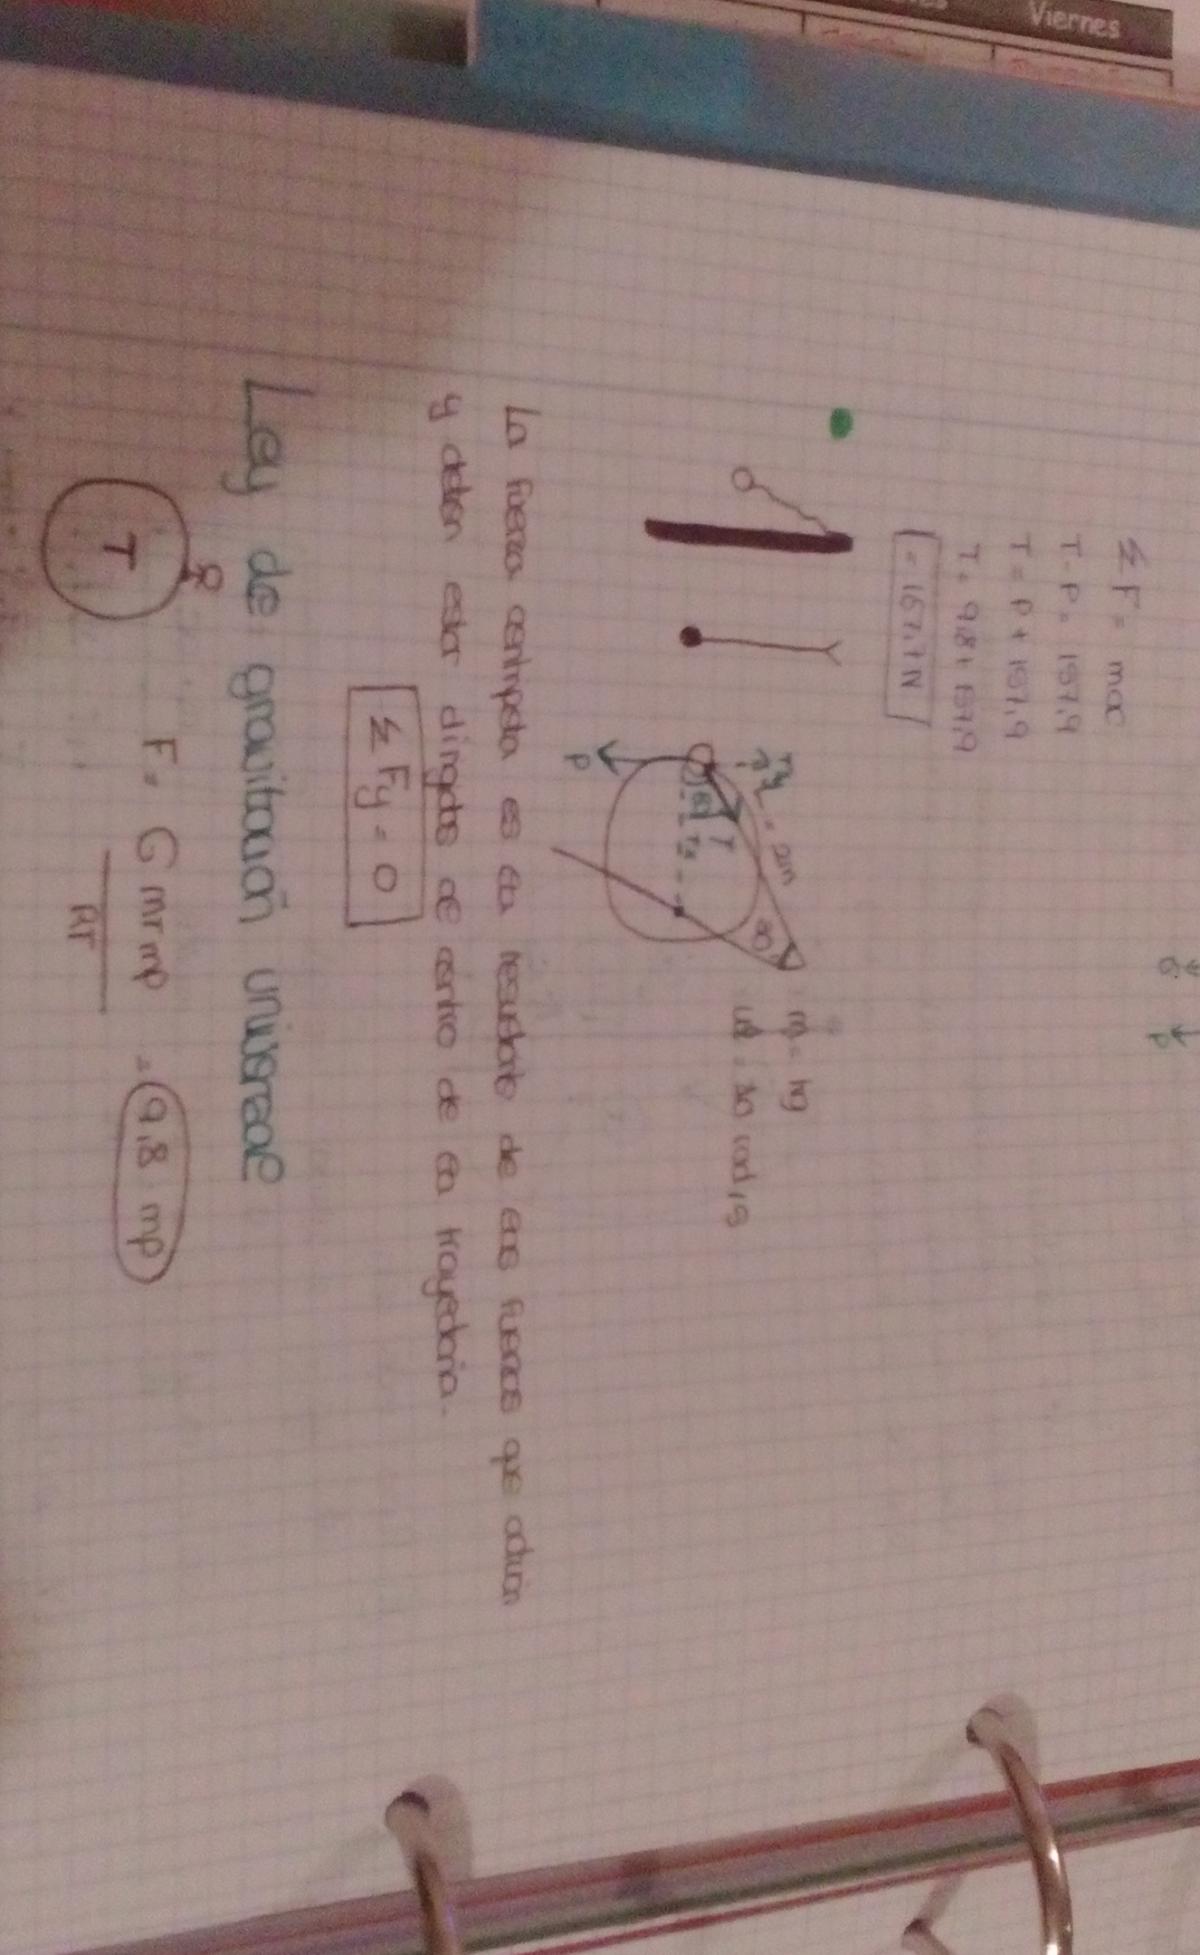 Viernes
Σ F = m ac
T - P = 157,9
T = P + 157,9
T = 9,8 + 157,9
= 167,7 N
Ty
= 2m
T
Tx
P
m = 1kg
= 30 rad/s
La fuerza centripeta es la resultante de las fuerzas que actuan
y deben estar dirigidas al centro de la trayectoria.
Σ Fy = 0
Ley de gravitación universal
T
F = G mT mp = 9,8 mp
RT